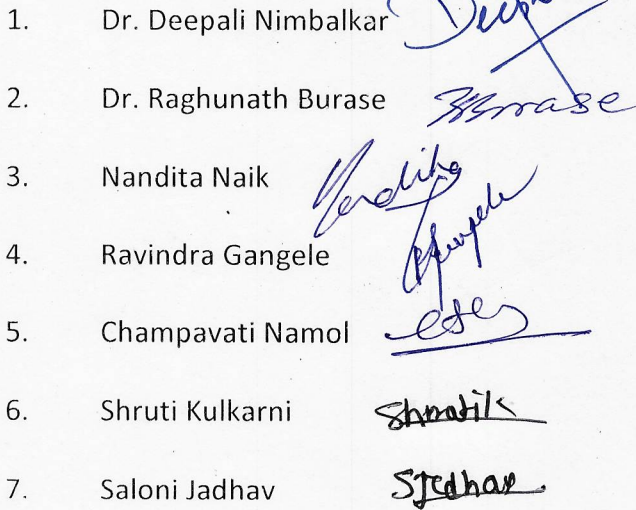 1. Dr. Deepali Nimbalkar
2. Dr. Raghunath Burase Burase
3. Nandita Naik Nandita
4. Ravindra Gangele
5. Champavati Namol
6. Shruti Kulkarni Shrutik
7. Saloni Jadhav SJadhav